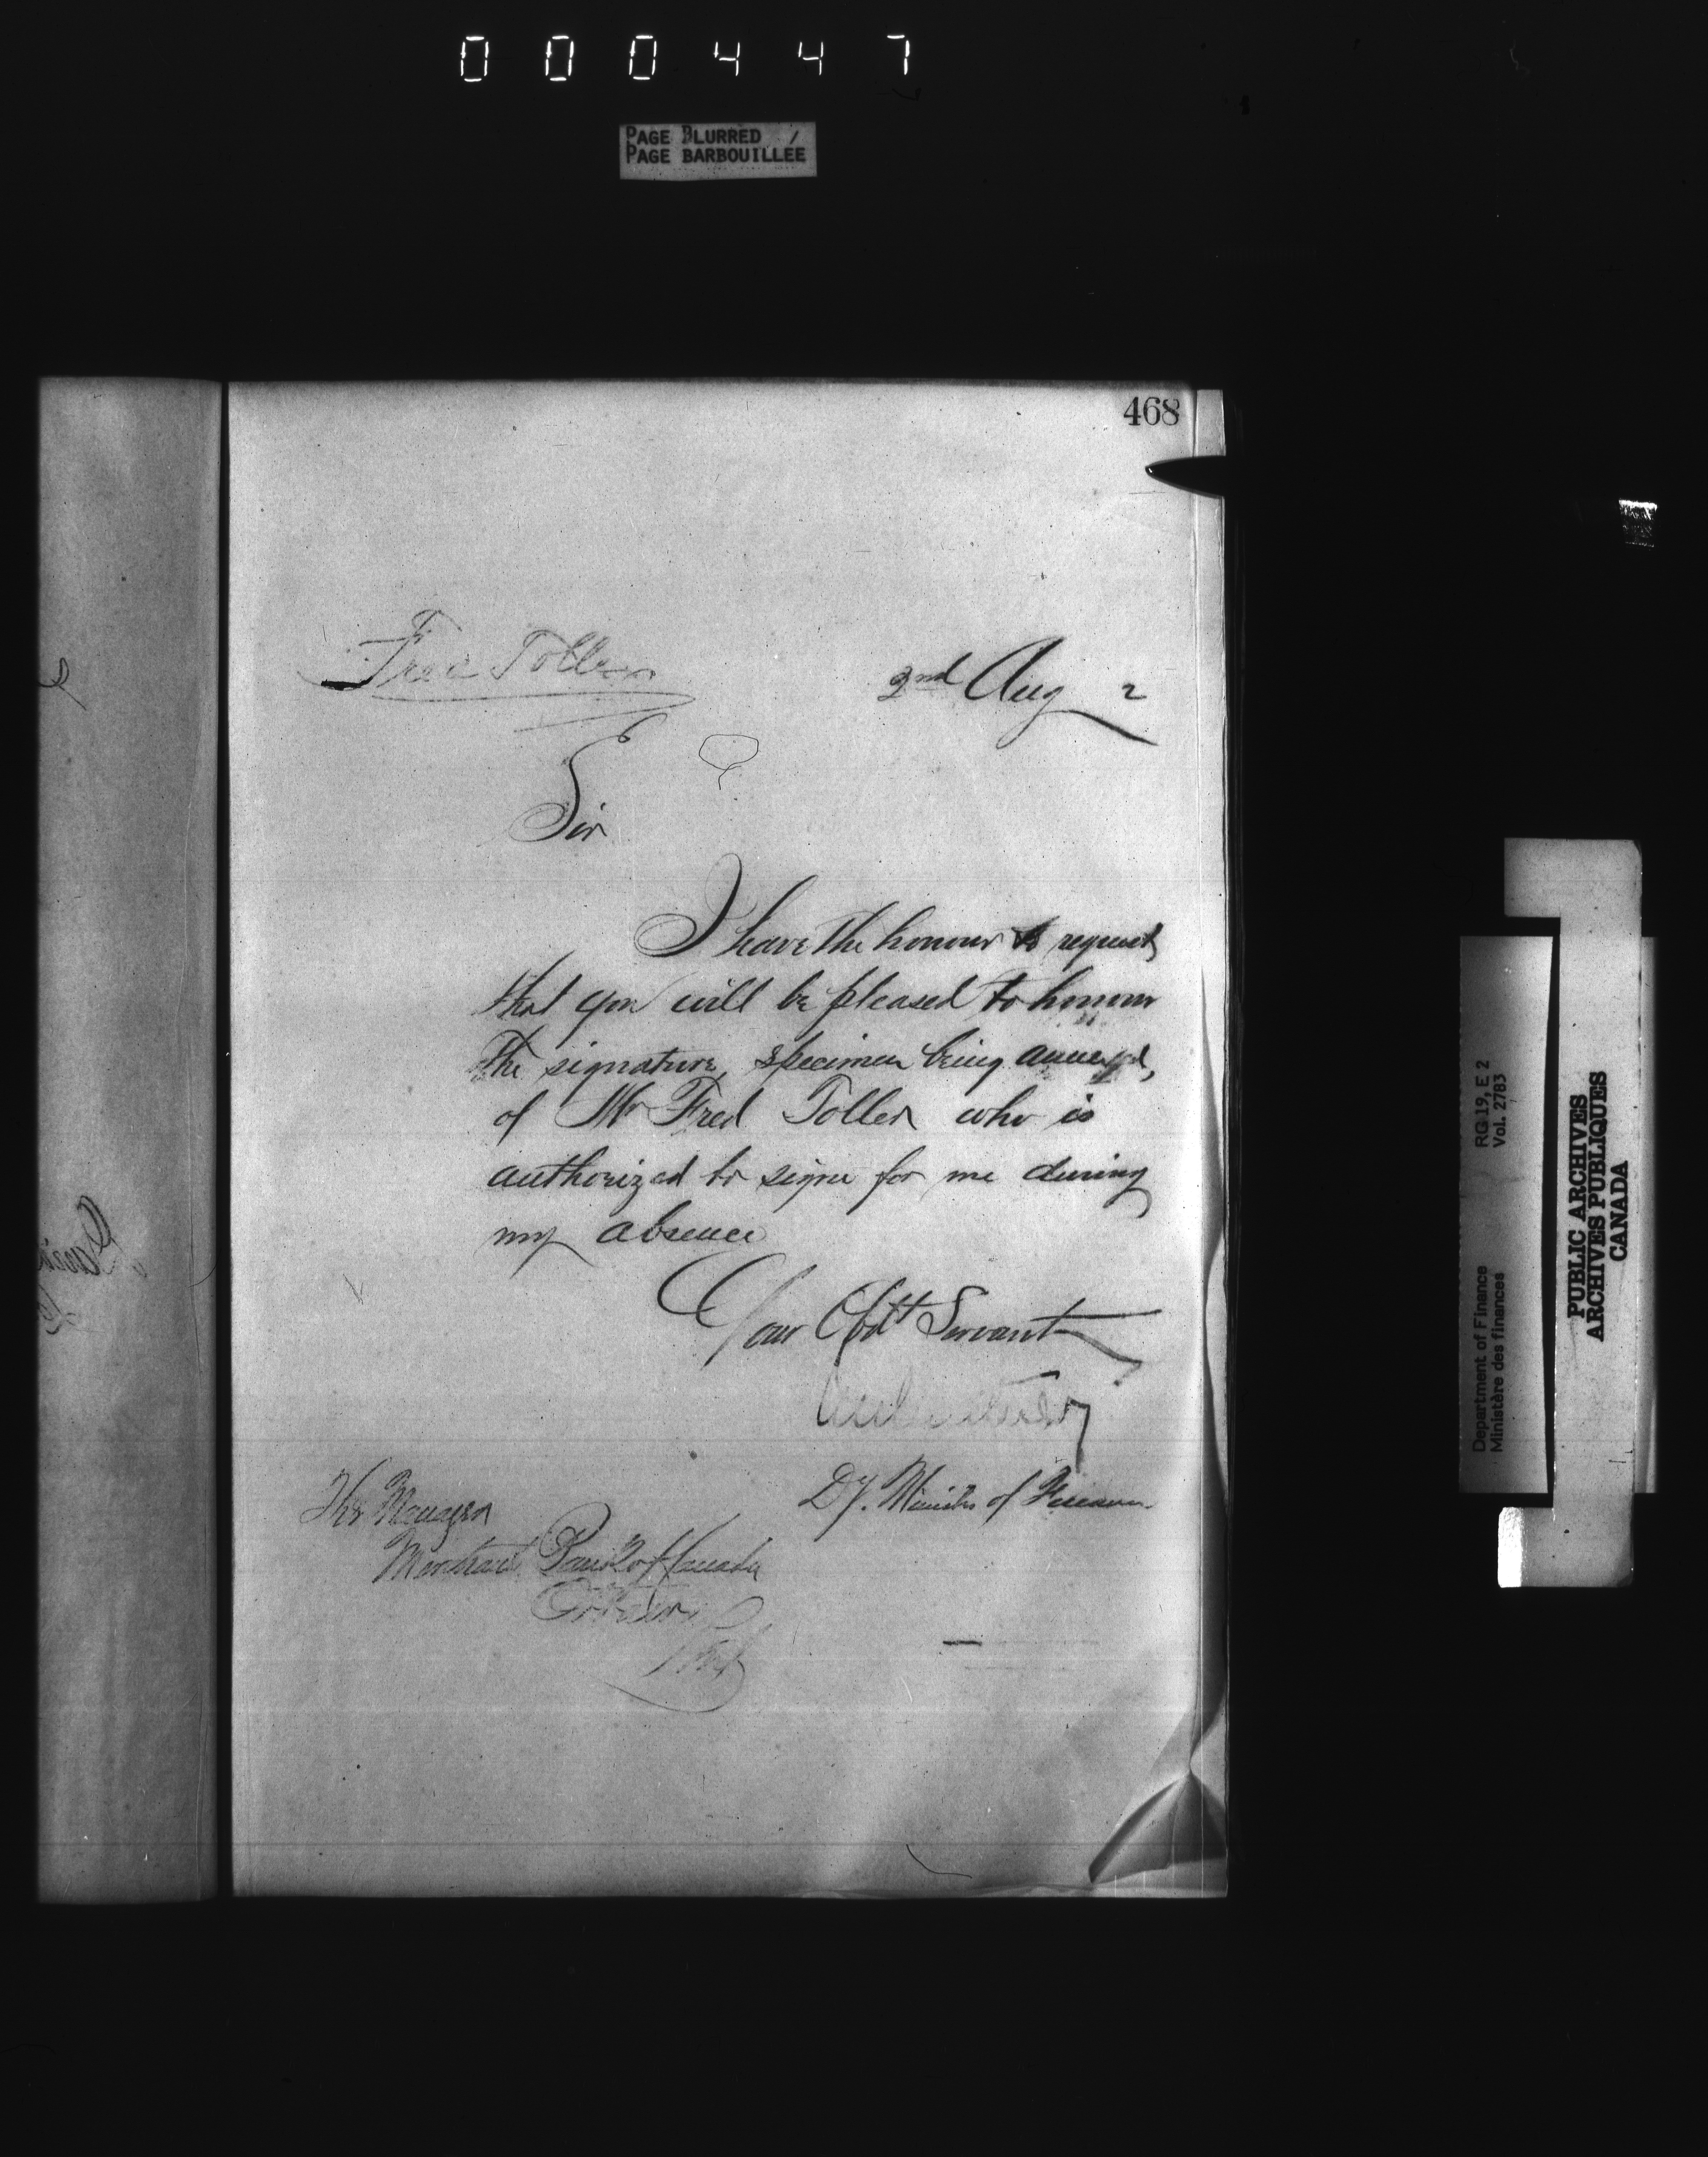 000447
PAGE BLURRED /
PAGE BARBOUILLEE
468
Fred Toller
2nd Aug 2
Sir
I have the honour to request
that you will be pleased to honour
the signature, specimen being annexed,
of Mr Fred Toller who is
authorized to signe for me during
my absence
Your Obdt Servant
Dy. Minister of Finance
The Manager
Merchants Bank of Canada
Ottawa
Department of Finance RG 19, E 2
Ministère des finances Vol. 2783
PUBLIC ARCHIVES
ARCHIVES PUBLIQUES
CANADA